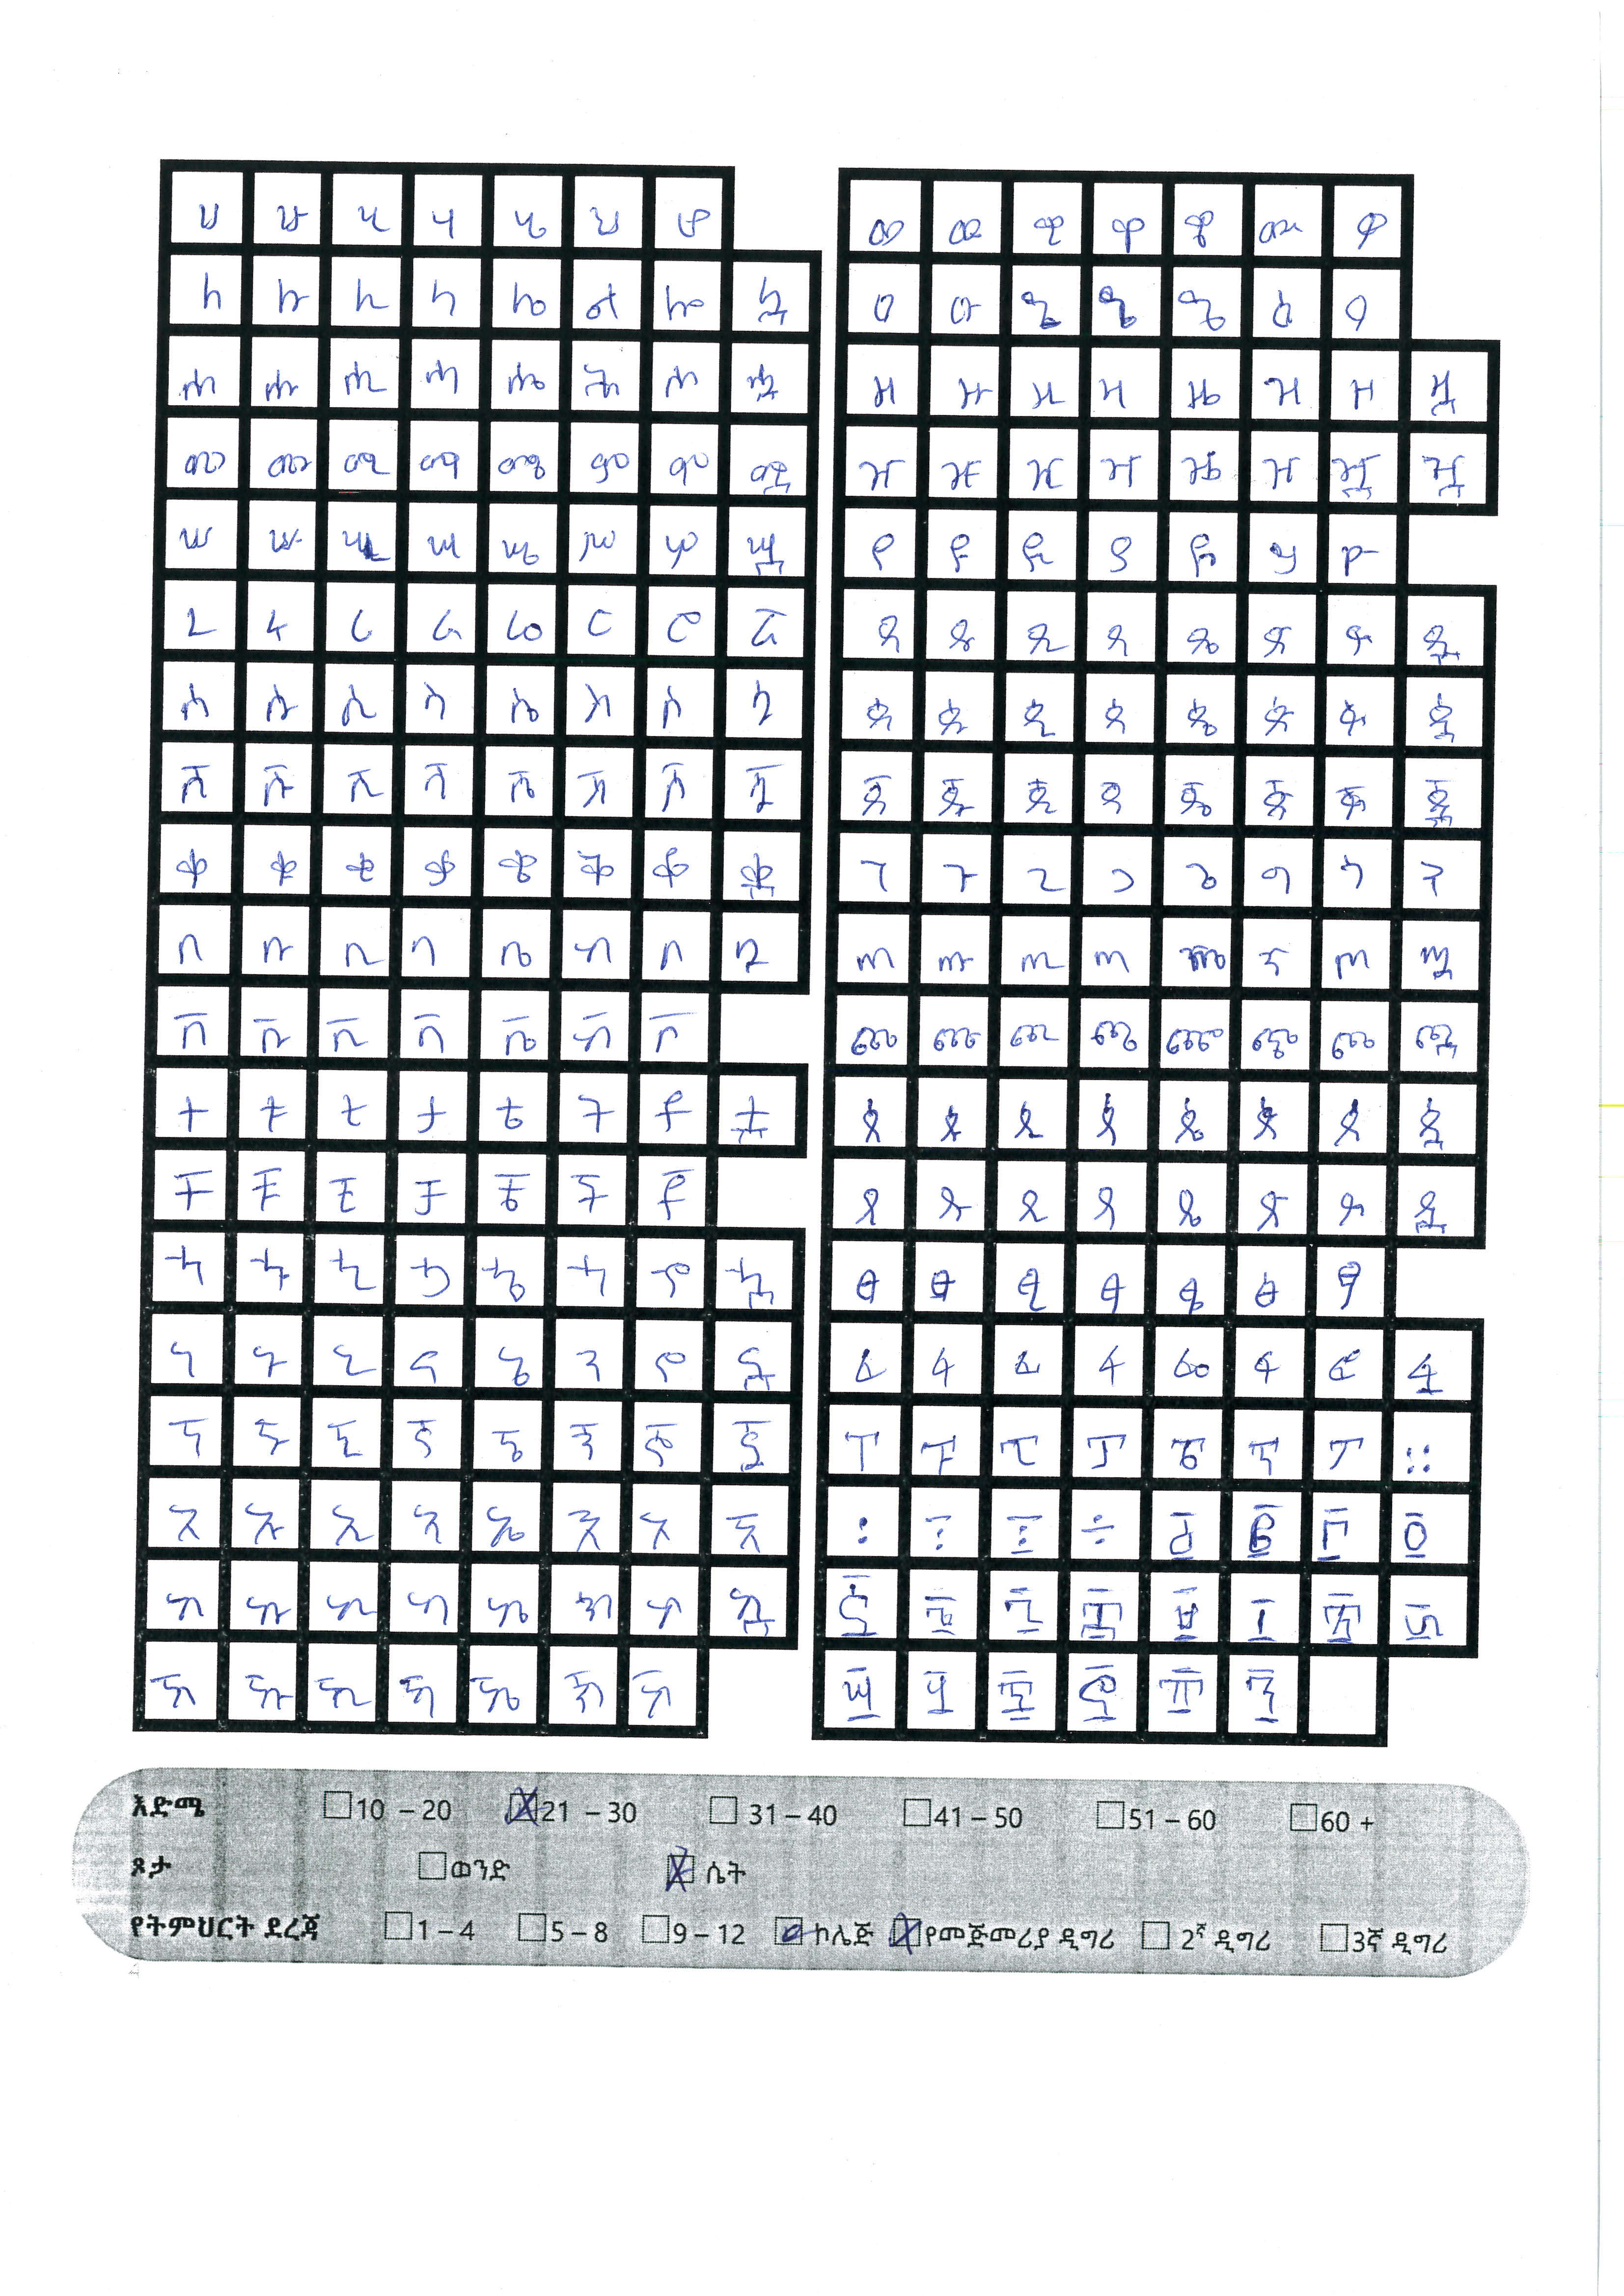 ሀ ሁ ሂ ሃ ሄ ህ ሆ
ለ ሉ ሊ ላ ሌ ል ሎ ሏ
ሐ ሑ ሒ ሓ ሔ ሕ ሖ ሗ
መ ሙ ሚ ማ ሜ ም ሞ ሟ
ሠ ሡ ሢ ሣ ሤ ሥ ሦ ሧ
ረ ሩ ሪ ራ ሬ ር ሮ ሯ
ሰ ሱ ሲ ሳ ሴ ስ ሶ ሷ
ሸ ሹ ሺ ሻ ሼ ሽ ሾ ሿ
ቀ ቁ ቂ ቃ ቄ ቅ ቆ ቋ
በ ቡ ቢ ባ ቤ ብ ቦ ቧ
ቨ ቩ ቪ ቫ ቬ ቭ ቮ
ተ ቱ ቲ ታ ቴ ት ቶ ቷ
ቸ ቹ ቺ ቻ ቼ ች ቾ
ኀ ኁ ኂ ኃ ኄ ኅ ኆ ኋ
ነ ኑ ኒ ና ኔ ን ኖ ኗ
ኘ ኙ ኚ ኛ ኜ ኝ ኞ ኟ
አ ኡ ኢ ኣ ኤ እ ኦ ኧ
ከ ኩ ኪ ካ ኬ ክ ኮ ኳ
ኸ ኹ ኺ ኻ ኼ ኽ ኾ
ወ ዉ ዊ ዋ ዌ ው ዎ
ዐ ዑ ዒ ዔ ዕ ዖ
ዘ ዙ ዚ ዛ ዜ ዝ ዞ ዟ
ዠ ዡ ዢ ዣ ዤ ዥ ዧ
የ ዩ ዪ ያ ዬ ይ ዮ
ደ ዱ ዲ ዳ ዴ ድ ዶ ዷ
ጰ ጱ ጲ ጳ ጴ ጵ ጶ ጷ
ጀ ጁ ጂ ጃ ጄ ጅ ጆ ጇ
ገ ጉ ጊ ጋ ጌ ግ ጎ ጓ
ጠ ጡ ጢ ጣ ጤ ጥ ጦ ጧ
ጨ ጩ ጪ ጫ ጬ ጭ ጮ ጯ
ጰ ጱ ጲ ጳ ጴ ጵ ጶ ጷ
ጸ ጹ ጺ ጻ ጼ ጽ ጾ ጿ
ፀ ፁ ፂ ፃ ፄ ፅ ፆ
ፈ ፉ ፊ ፋ ፌ ፍ ፎ ፏ
ፐ ፑ ፒ ፓ ፔ ፕ ፖ ።
፡ ፤ ÷ ፩ ፪ ፫ ፬
፭ ፮ ፯ ፰ ፱ ፲ ፳ ፴
፵ ፶ ፷ ፸ ፹ ፺
እድሜ 10 – 20 21 – 30 31 – 40 41 – 50 51 – 60 60 +
ጾታ ወንድ ሴት
የትምህርት ደረጃ 1 – 4 5 – 8 9 – 12 ኮሌጅ የመጅመሪያ ዲግሪ 2ኛ ዲግሪ 3ኛ ዲግሪ